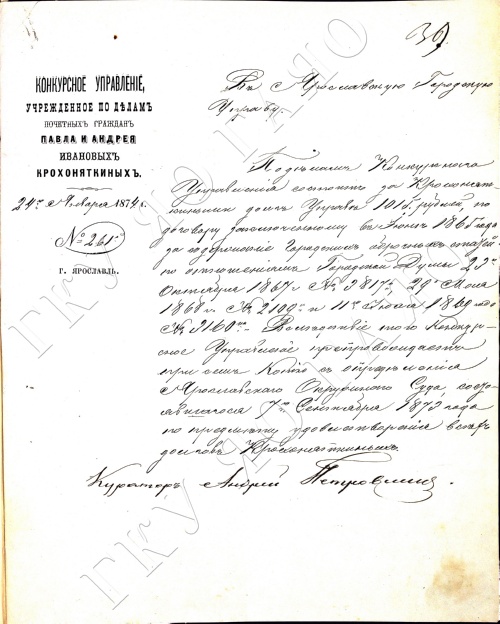 39.
КОНКУРСНОЕ УПРАВЛЕНІЕ,
УЧРЕЖДЕННОЕ ПО ДѢЛАМЪ
ПОЧЕТНЫХЪ ГРАЖДАНЪ
ПАВЛА И АНДРЕЯ
ИВАНОВЫХЪ
КРОХОНЯТКИНЫХЪ.
24го Января 1874 г.
№ 261
г. ЯРОСЛАВЛЬ.
Въ Ярославскую Городскую
Управу.
Конкурснаго
Управленія состоитъ за Крохонят-
кинымъ долгъ Управѣ рублей по
договору заключенному въ 1865 года
за Городскихъ оброчныхъ статей
по отношеніямъ Городской Думы 23го
Октября 1867 г. № 2817, 29го Мая
1868 г. № 2109 и 11го Іюля 1869 года
№ 3160. Вслѣдствіе того Конкур-
сное Управленіе препровождаетъ
при семъ Копію съ опредѣленія
Ярославскаго Окружнаго Суда
7го Сентября 1873 года
по предмету удовлетворенія
долговъ Крохоняткиныхъ.
Кураторъ Андрей
ГКУ ЯО ГАЯО
ГКУ ЯО ГАЯО
ГКУ ЯО ГАЯО